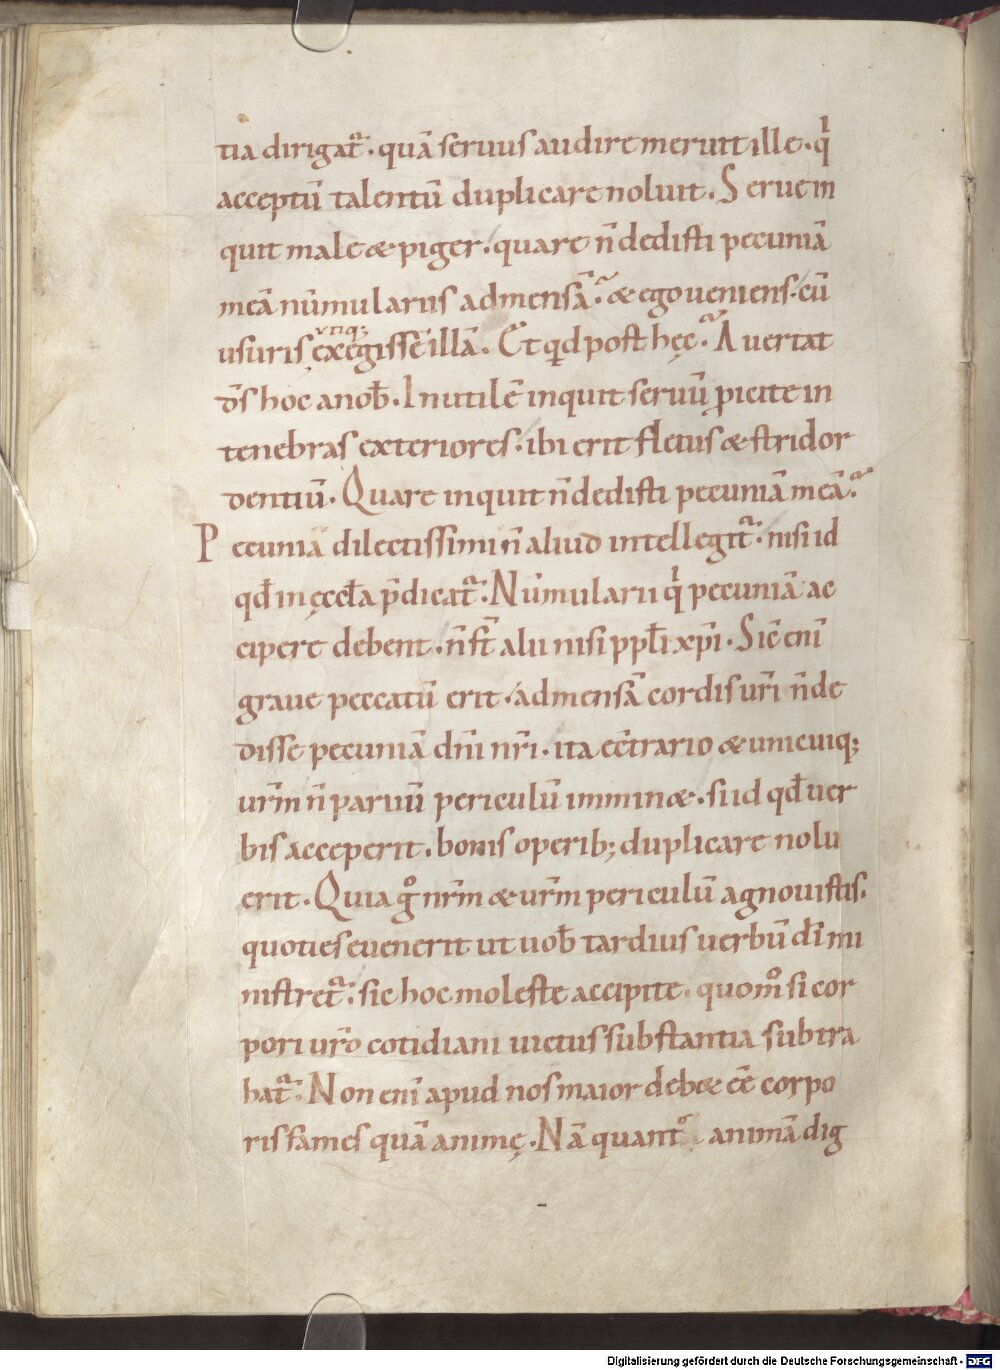 tia dirigat᷑ . quā seruus audire meruit ille . qͥ
acceptū talentū duplicare noluit . Serue in
quit male & piger . quare n̄ dedisti pecuniā
meā nūmulariis ad mensā . & ego ueniens cū
usuris utiq; exegissē illā . Et qd post hęc . Auertat
d̄s hoc a nob̄ . Inutilē inquit seruū ꝓicite in
tenebras exteriores . ibi erit fletus & stridor
dentiū . Quare inquit n̄ dedisti pecuniā meā .
Pecunia dilectissimi n̄ aliud intellegit᷑ . nisi id
qd̄ in ęccl̄a p̄dicat᷑ . Nūmularii qͥ pecuniā ac
cipere debent . n̄ st̄ alii nisi ppl̄i xp̄i . Sic̄ eni̅
graue peccatū erit . ad mensā cordis ur̄i n̄ de
disse pecuniā dn̄i nr̄i . ita ec̄trario & unicuiq;
ur̄m n̄ paruū periculū immin& . si id qd̄ uer
bis acceperit . bonis operib; duplicare nolu
erit . Quia gͦ nr̄m & ur̄m periculū agnouistis .
quoties euenerit ut uob̄ tardius uerbū dī mi
nistret᷑ . sic hoc moleste accipite . quom̊ si cor
pori ur̄o cotidiani uictus substantia subtra
hat᷑ . Non eni̅ apud nos maior deb& ēe corpo
ris fames quā animę . Nā quantͦ animā dig
Digitalisierung gefördert durch die Deutsche Forschungsgemeinschaft - DFG